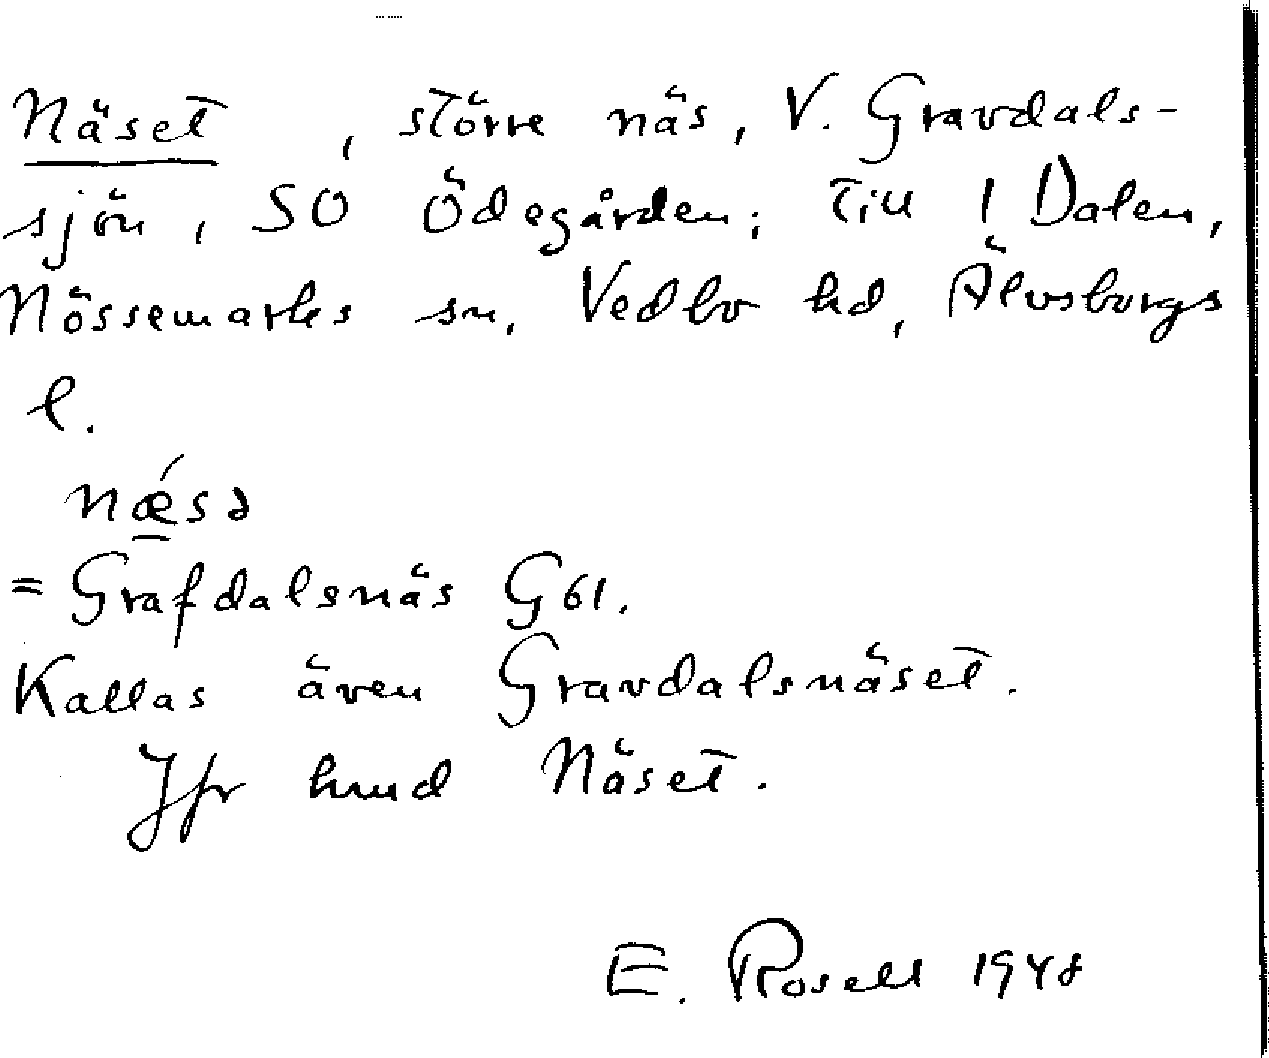 Näset, större näs, V. Gravdals-
sjön, SO Ödegården; till 1 Dalen,
Nössemarks sn, Vedbo hd, Älvsborgs
l.
nǽsə
= Grafdalsnäs G 61.
Kallas även Gravdalsnäset.
Jfr hmd Näset.
E. Rosell 1948